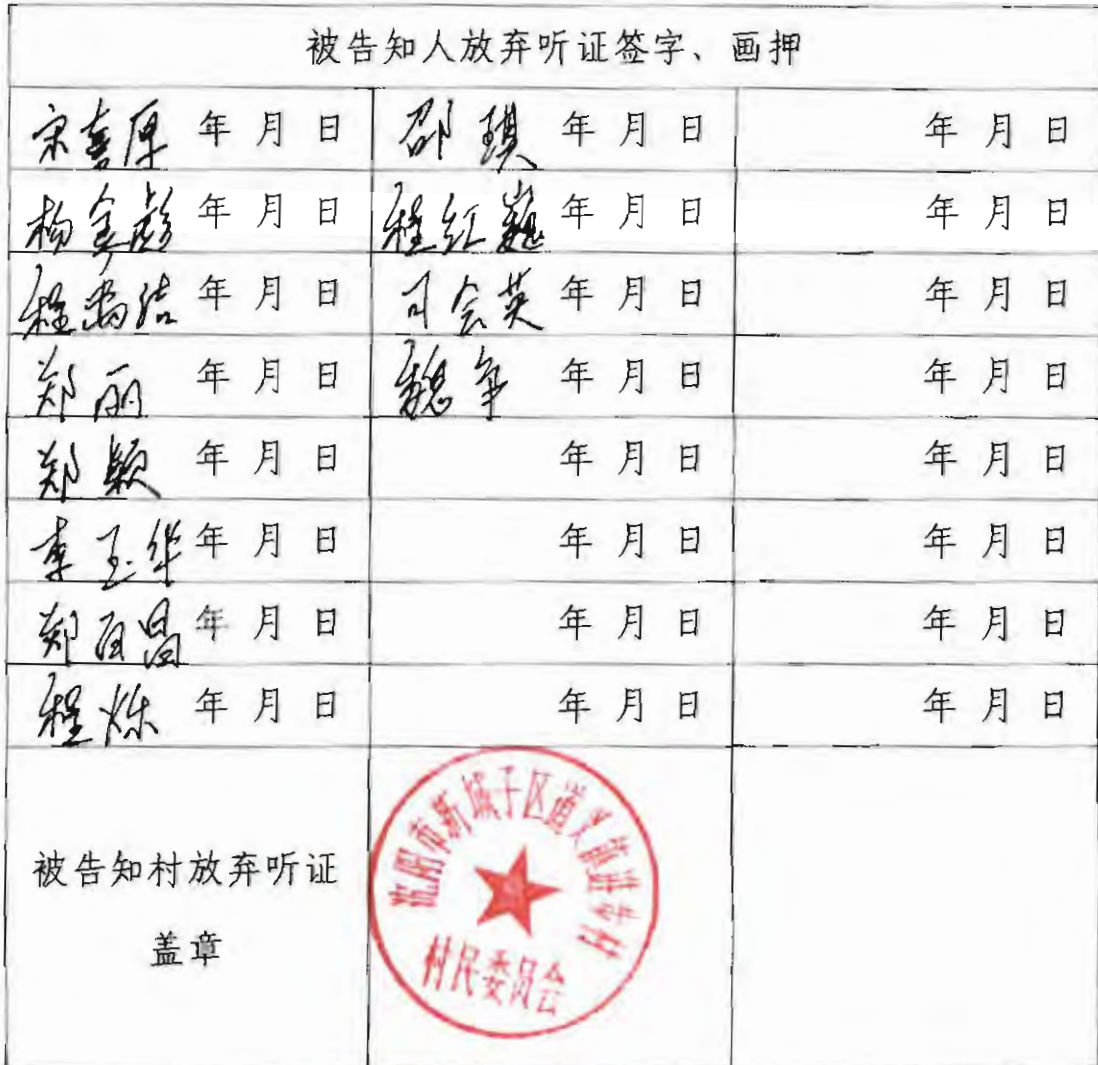 被告知人放弃听证签字、画押
宋喜厚 年 月 日 邵琪 年 月 日 年 月 日
杨金彭 年 月 日 程红巍 年 月 日 年 月 日
程 年 月 日 司会英 年 月 日 年 月 日
郑丽 年 月 日 魏争 年 月 日 年 月 日
郑颖 年 月 日 年 月 日 年 月 日
李玉华 年 月 日 年 月 日 年 月 日
郑百昌 年 月 日 年 月 日 年 月 日
程烁 年 月 日 年 月 日 年 月 日
被告知村放弃听证
盖章
沈阳市新城子区道义镇进步村
村民委员会